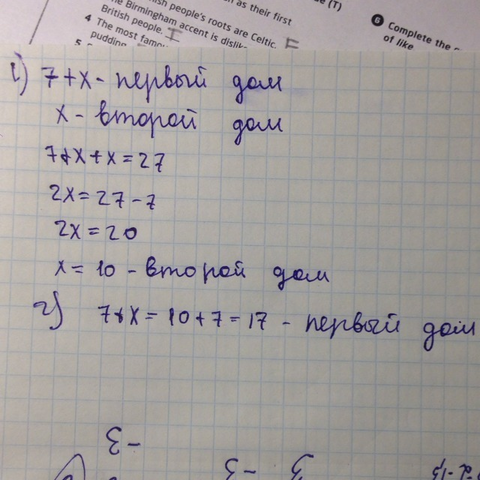 as their first
ish people's roots are Celtic. F
he Birmingham accent is
British people. F
4 The most
pudding
(T)
6 Complete the
of like
1) 7+x - первый дом
x - второй дом
7+x+x=27
2x=27-7
2x=20
x=10 - второй дом
2) 7+x=10+7=17 - первый дом
-3
-3